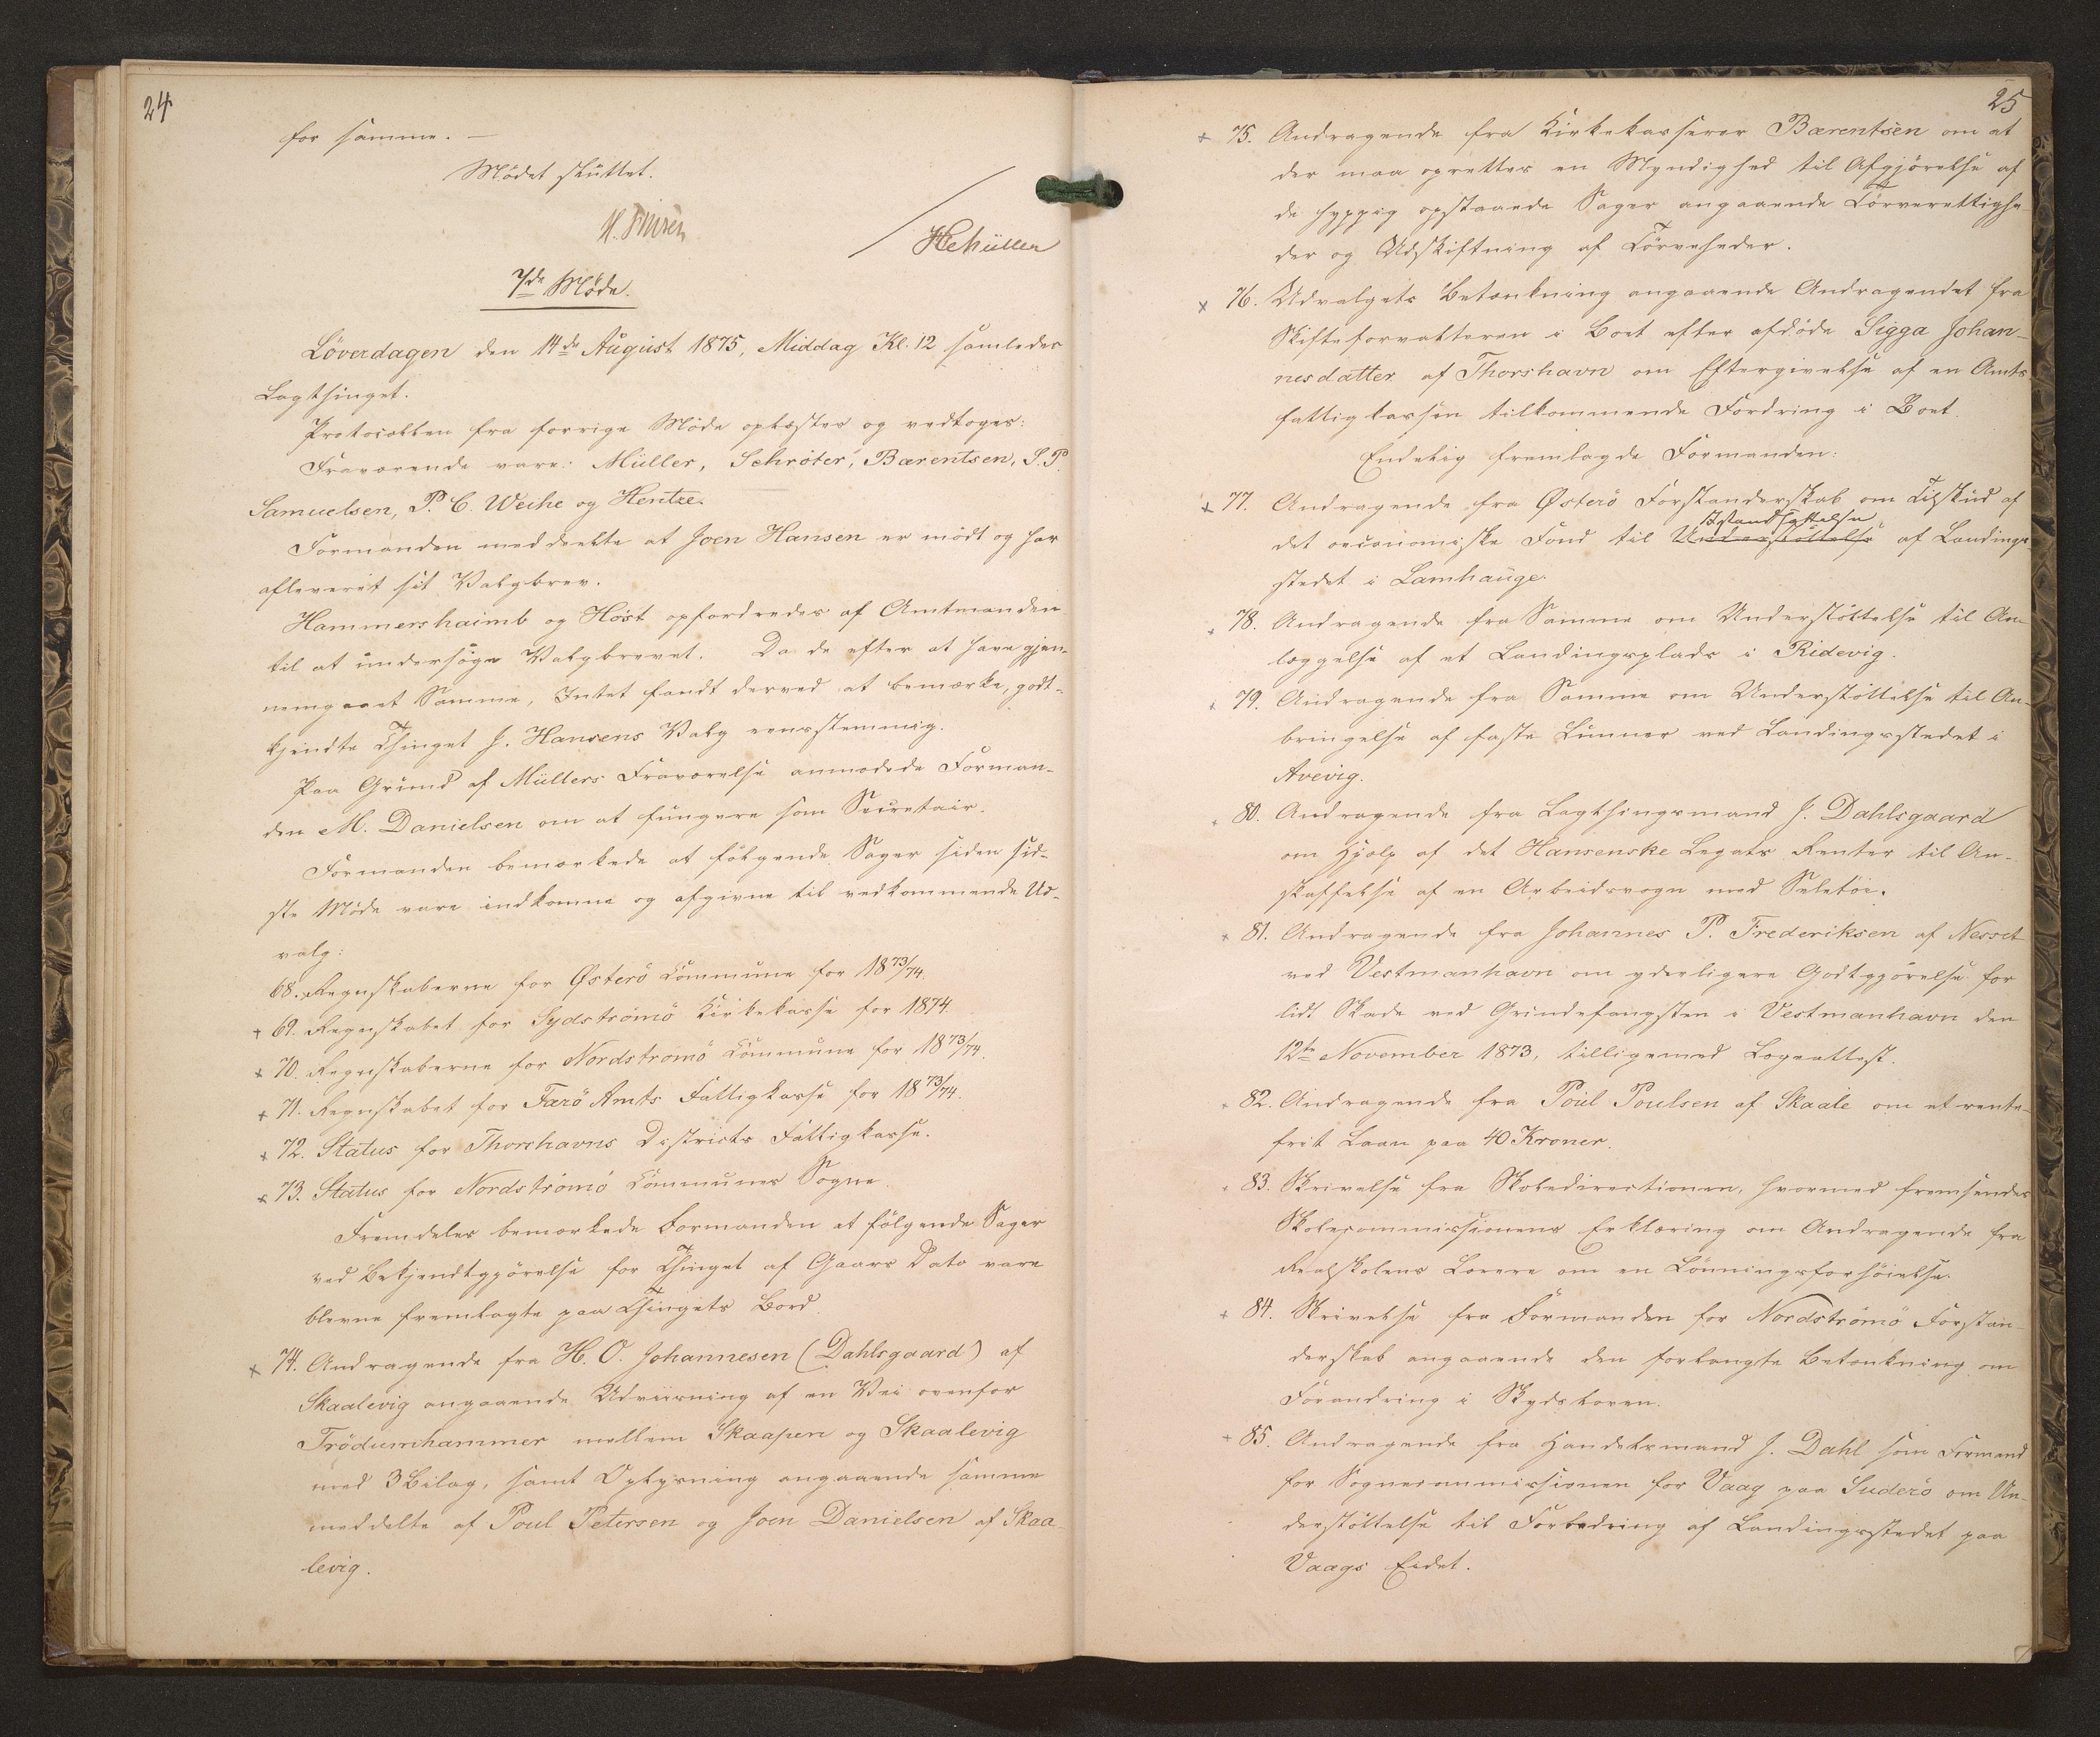 24
for samme. —
Mødet sluttet.
H. Finsen
HCMüller
7de Møde.
Löverdagen den 14de August 1875, Middag Kl. 12 samledes
Lagthinget.
Protocollen fra forrige Møde oplæstes og vedtoges:
Fraværende vare: Müller, Schrøter, Bærentsen, S. P.
Samuelsen, P. C. Weihe og Hentze.
Formanden meddeelte at Joen Hansen er mödt og har
afleveret sit Valgbrev.
Hammershaimb og Höst opfordredes af Amtmanden
til at undersöge Valgbrevet. Da de efter at have gjen-
nemgaaet Samme, Intet fandt derved at bemærke, godt-
kjendte Thinget J. Hansens Valg eensstemmig.
Paa Grund af Müllers Fraværelse anmodede Forman-
den M. Danielsen om at fungere som Secretair.
Formanden bemærkede at følgende Sager siden sid-
ste Möde vare indkomne og afgivne til vedkommende Ud-
valg:
68. Regnskaberne for Østerö Commune for 1873/74.
+ 69. Regnskabet for Sydströmö Kirkekasse for 1874.
x 70. Regnskaberne for Nordströmö Commune for 1873/74.
+ 71. Regnskabet for Færö Amts Fattigkasse for 1873/74.
x 72. Status for Thorshavns Districts Fattigkasse.
x 73. Status for Nordströmö Communes Sogne.
Fremdeles bemærkede Formanden at fölgende Sager
ved Bekjendtgjörelse for Thinget af Gaars Dato vare
blevne fremlagte paa Thingets Bord.
x 74. Andragende fra H. O. Johannesen (Dahlsgaard) af
Skaalevig angaaende Udviisning af en Vei ovenfor
Trödumhammer mellem Skaapen og Skaalevig
med 3 Bilag, samt Oplysning angaaende samme
meddelte af Poul Petersen og Joen Danielsen af Skaa-
levig.
25
x 75. Andragende fra Kirkekasserer Bærentsen om at
der maa oprettes en Myndighed til Afgjörelse af
de hyppig opstaaende Sager angaaende Törverettighe-
der og Udskiftning af Törveheder.
x 76. Udvalgets Betænkning angaaende Andragendet fra
Skifteforvalteren i Boet efter afdöde Sigga Johan-
nesdatter af Thorshavn om Eftergivelse af en Amts
fattigkassen tilkommende Fordring i Boet.
Endelig fremlagde Formanden:
x 77. Andragende fra Østerö Forstanderskab om Tilskud af
Istandsættelse
det oeconomiske Fond til Understöttelse af Landings-
stedet i Lamhauge.
x 78. Andragende fra Samme om Understöttelse til An-
læggelse af et Landingsplads i Ridevig.
x 79. Andragende fra Samme om Understöttelse til An-
bringelse af faste Lunner ved Landingsstedet i
Avevig.
x 80. Andragende fra Lagthingsmand J. Dahlsgaard
om Hjælp af det Hansenske Legats Renter til An-
skaffelse af en Arbeidsvogn med Seletöi.
x 81. Andragende fra Johannes P. Frederiksen af Nesset
ved Vestmanhavn om yderligere Godtgjörelse for
lidt Skade ved Grindefangsten i Vestmanhavn den
12te November 1873, tilligemed Lægeattest.
x 82. Andragende fra Poul Poulsen af Skaale om et rente-
frit Laan paa 40 Kroner.
x 83. Skrivelse fra Skoledirectionen, hvormed fremsendes
Skolecommissionens Erklæring om Andragende fra
Realskolens Lærere om en Lönningsforhöielse.
+ 84. Skrivelse fra Formanden for Nordströmö Forstan-
derskab angaaende den forlangte Betænkning om
Forandring i Skydsloven.
+ 85. Andragende fra Handelsmand J. Dahl som Formand
for Sognecommissionen for Vaag paa Suderö om Un-
derstöttelse til Forbedring af Landingsstedet paa
Vaags Eidet.